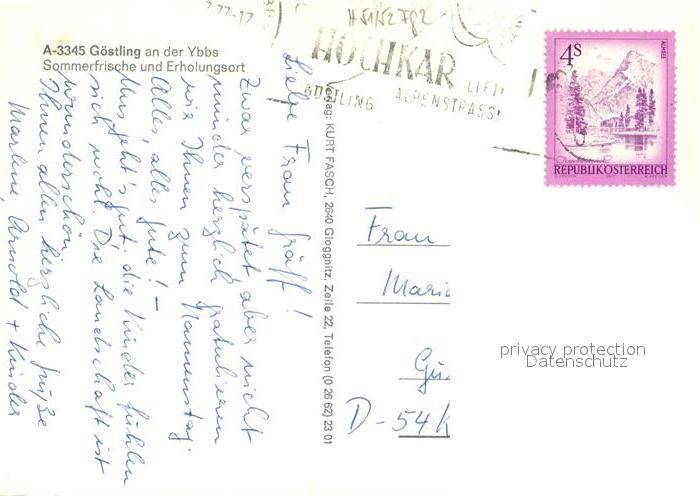 A-3345 Göstling an der Ybbs
Sommerfrische und Erholungsort
H 51/52 Fg2
HOCHKAR
LIFT
GÖSTLING ALPENSTRASS
4S
ALMSEE
REPUBLIK ÖSTERREICH
Verlag: KURT FASCH, 2640 Gloggnitz, Zeile 22, Telefon (0 26 62) 23 01
Liebe Frau Gräff!
Zwar verspätet aber nicht
minder herzlich gratulieren
wir Ihnen zum Namenstag.
Alles, alles Gute! –
Uns geht's gut, die Kinder fühlen
sich wohl. Die Landschaft ist
wunderschön.
Ihnen allen herzliche Grüße
Marlene, Arnold + Kinder
Frau
Maria
Gü
D-54
privacy protection
Datenschutz